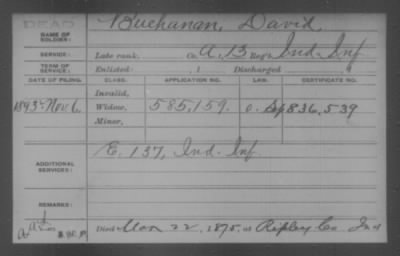 DEAD
NAME OF SOLDIER: Buchanan, David
SERVICE: Late rank, Co. A, 13 Reg't Ind. Inf
TERM OF SERVICE: Enlisted , 1 Discharged , 1
DATE OF FILING. CLASS. APPLICATION NO. LAW. CERTIFICATE NO.
Invalid,
1893 Nov. 6 Widow, 585,159. 836,539
Minor,
ADDITIONAL SERVICES: E. 137, Ind. Inf.
REMARKS:
Died Mar 22, 1875, at Ripley Co. Ind